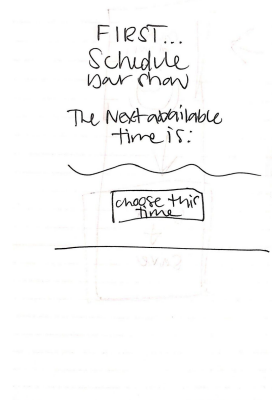 FIRST...
Schedule
your show
The Next available
time is:
choose this
time